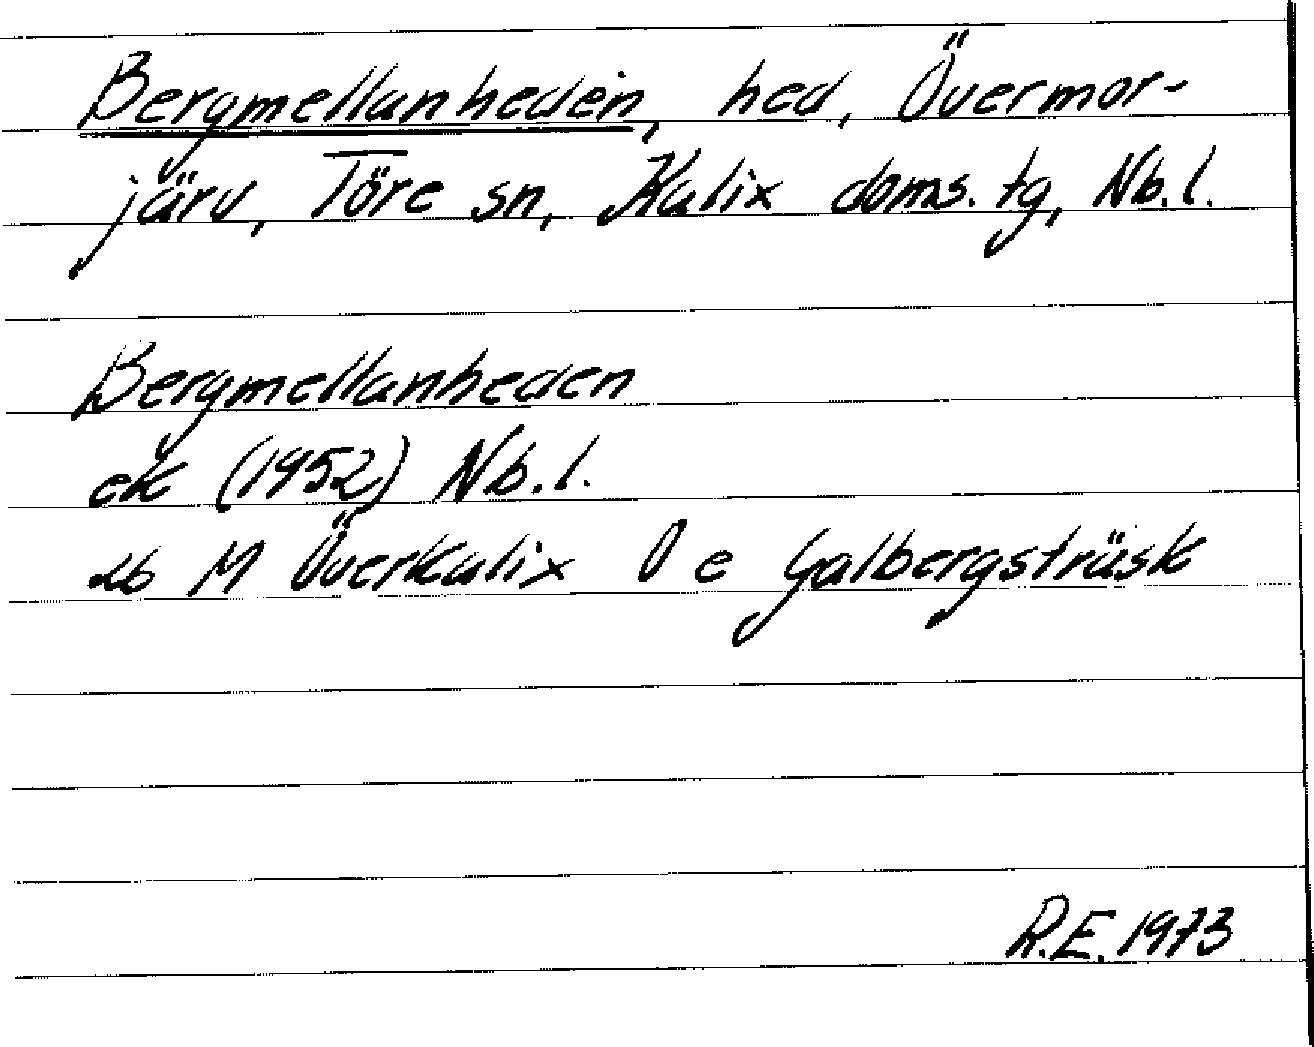 Bergmellanheden, hed, Övermor-
järv, Töre sn, Kalix doms. tg, Nb.l.
Bergmellanheden
ek (1952) Nb.l.
26 M Överkalix O e Galbergsträsk
R.E. 1973